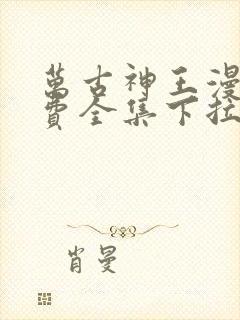 萬古神王漫
費全集下拉
肖曼